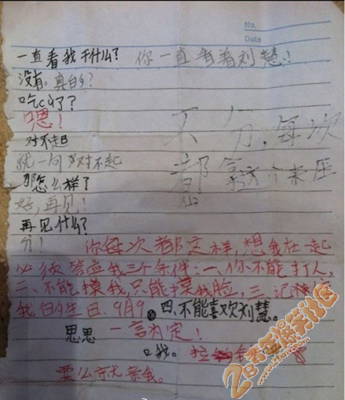 No.
Date
一直看我干什么？ 你一直看着刘慧！
没有，真的？
吃醋了？
嗯！
对不起
说一句对不起
那怎么样了
好，再见！
再见什么？
分！
不分，每次
都拿这个来压
你每次都这样，想我在一起
必须答应我三个条件：一、你不能打人，
二、不能摸我，只能摸我脸，三、记住
我的生日，9月9，四、不能喜欢刘慧。
思思 一言为定！
要么亲我。